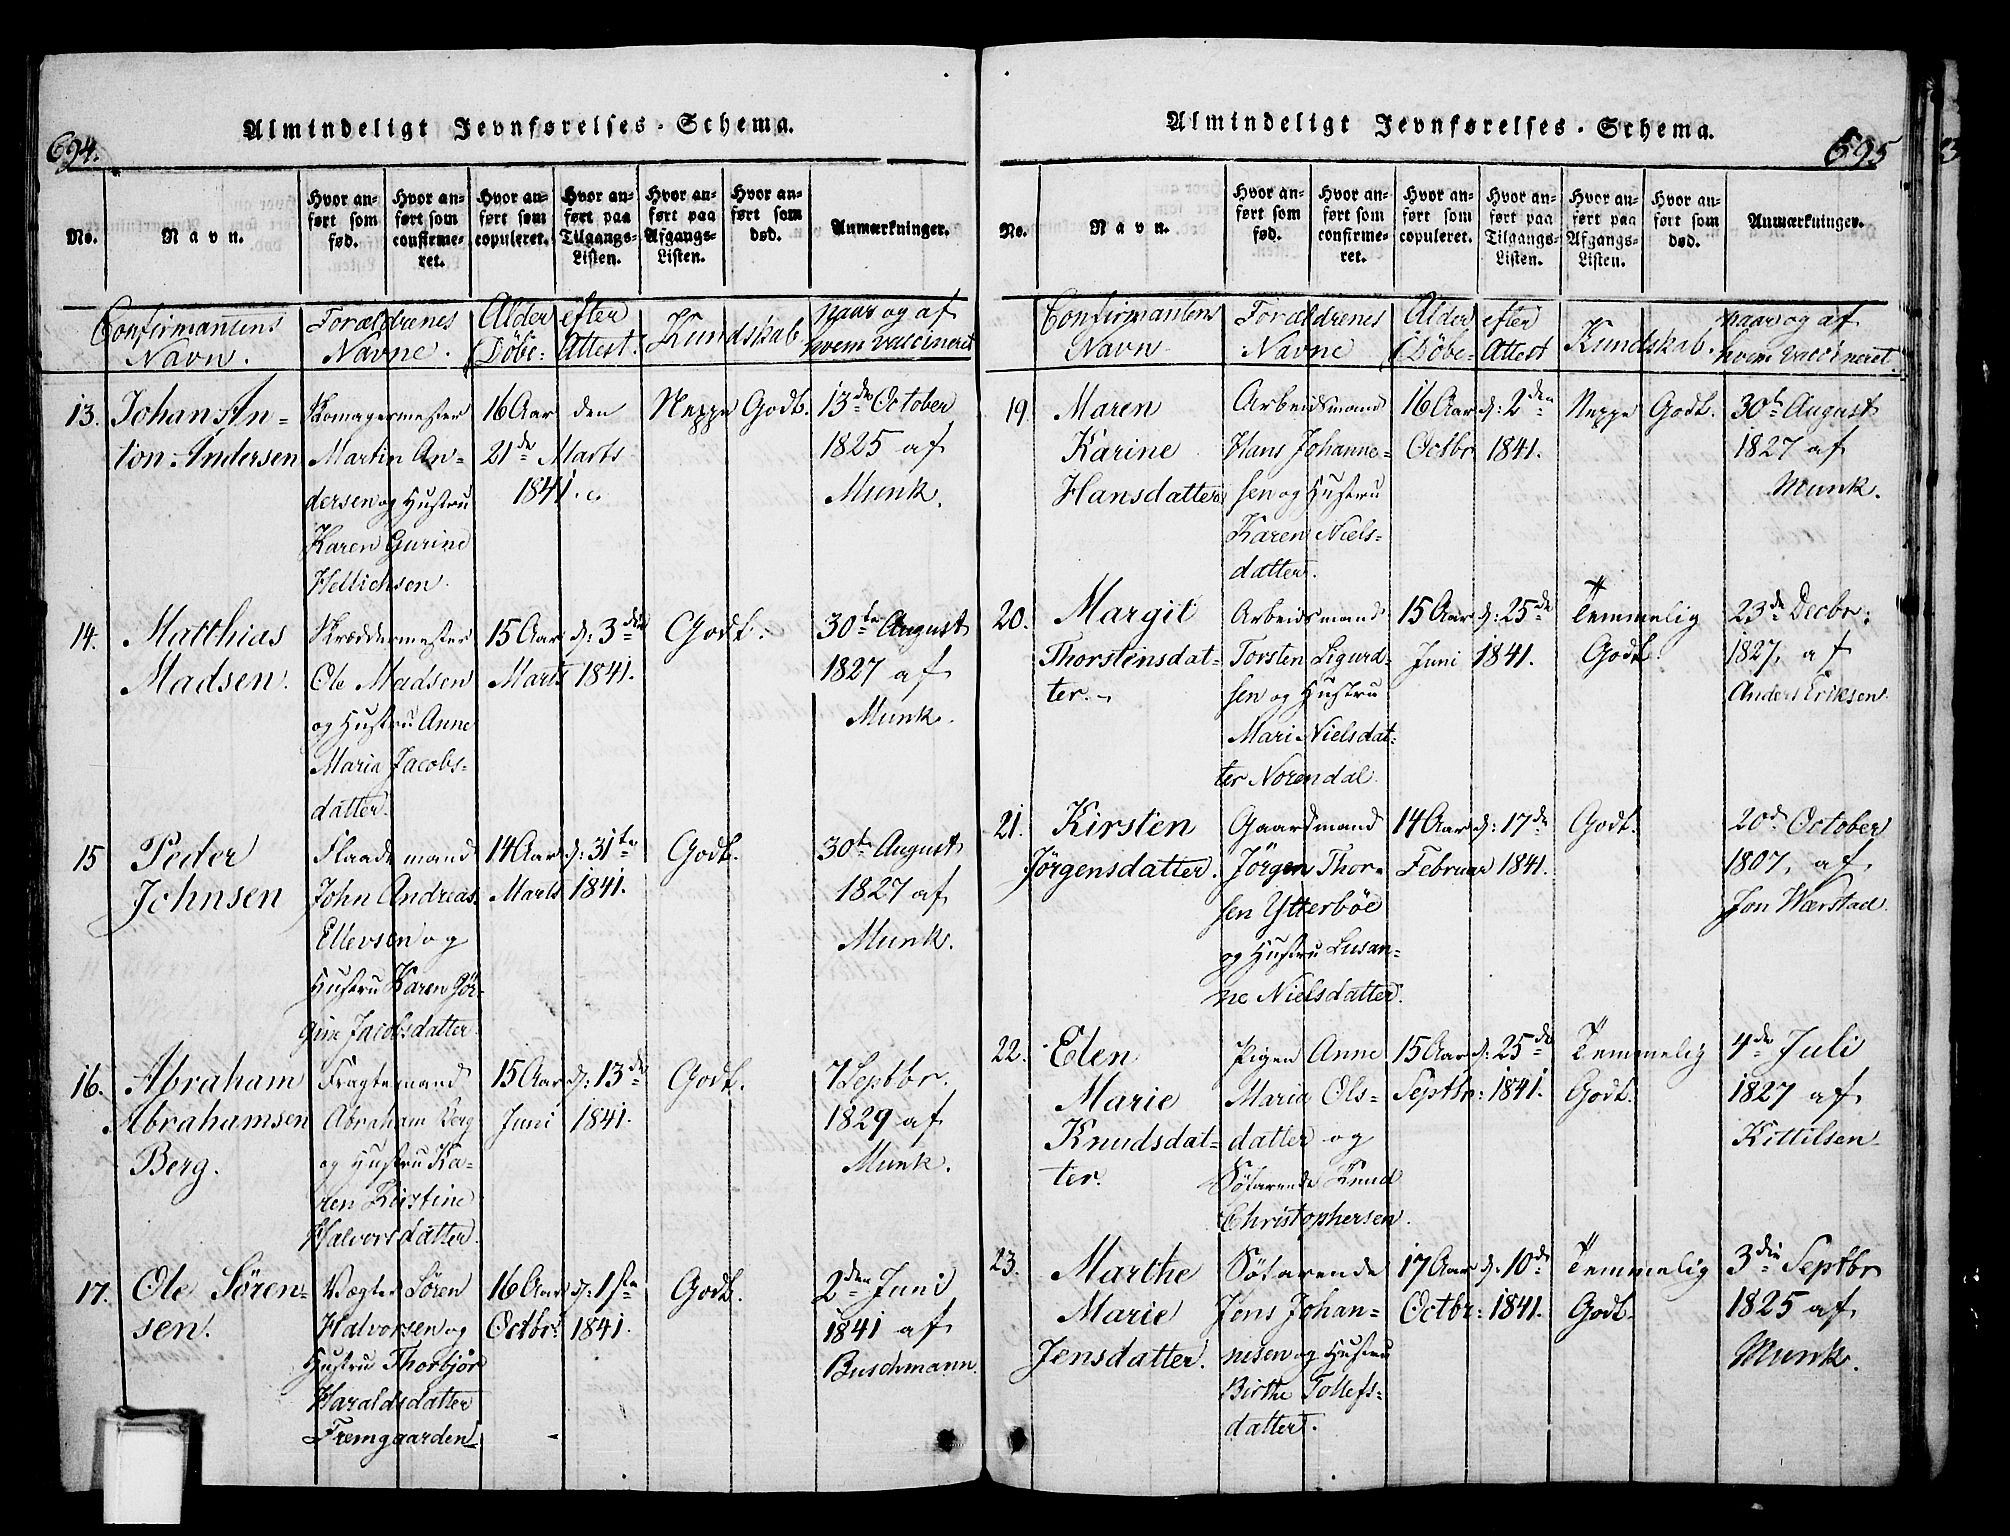 694.
Almindeligt Jevnførelses-Schema.
No.
Navn.
Hvor anført som fød.
Hvor anført som confirmeret.
Hvor anført som copuleret.
Hvor anført paa Tilgangs-Listen.
Hvor anført paa Afgangs-Listen.
Hvor anført som død.
Anmærkninger.
Confirmantens Navn.
Forældrenes Navne.
Alder efter Döbe-Attest.
Kundskab
naar og af hvem vaccineret
13. Johan An-
ton Andersen
Komagermester
Martin An-
dersen og Hustru
Karen Gurine
Hellichsen.
16 Aar den
21de Marts
1841.
Neppe Godt.
13de October
1825 af
Munk.
14. Matthias
Madsen.
Skræddermester
Ole Madsen
og Hustru Anne
Maria Jacobs-
datter.
15 Aar d: 3die
Marts 1841.
Godt.
30te August
1827 af
Munk.
15 Peder
Johnsen
Flaademand
John Andreas
Ellevsen og
Hustru Karen Jör-
gine Jacobsdatter.
14 Aar d: 31te
Marts 1841.
Godt.
30te August
1827 af
Munk.
16. Abraham
Abrahamsen
Berg.
Fragtemand
Abraham Berg
og Hustru Ka-
ren Kristine
Halvorsdatter.
15 Aar d: 13de
Juni 1841.
Godt.
7 Septbr.
1829 af
Munk.
17. Ole Sören-
sen.
Vægter Sören
Halvorsen og
Hustru Thorbjör
Haraldsdatter
Fremgaarden
16 Aar d: 1ste
Octbr: 1841.
Godt.
2den Juni
1841 af
Buschmann.
Almindeligt Jevnførelses-Schema.
695
No.
Navn.
Hvor anført som fød.
Hvor anført som confirmeret.
Hvor anført som copuleret.
Hvor anført paa Tilgangs-Listen.
Hvor anført paa Afgangs-Listen.
Hvor anført som død.
Anmærkninger.
Confirmantens Navn
Forældrenes Navne
Alder efter Döbe-Attest
Kundskab.
naar og af hvem vaccineret.
19. Maren
Karine
Hansdatter
Arbeidsmand
Hans Johanne-
sen og Hustru
Karen Niels-
datter.
16 Aar d: 2den
Octbr 1841.
Neppe Godt.
30te August
1827 af
Munk.
20. Margit
Thorsteinsdat-
ter.
Arbeidsmand
Torsten Sigurd-
sen og Hustru
Mari Nielsdat-
ter Norendal.
15 Aar d: 25de
Juni 1841.
Temmelig
Godt.
23de Decbr:
1827, af
Anders Eriksen
21. Kirsten
Jörgensdatter.
Gaardmand
Jörgen Thor-
sen Ytterböe
og Hustru Susan-
ne Nielsdatter.
14 Aar d: 17de
Februar 1841.
Godt.
20de October
1807, af
Jon Wærstad.
22. Elen
Marie
Knudsdat-
ter.
Pigen Anne
Maria Ols-
datter og
Söfarende Knud
Christophersen.
15 Aar d: 25de
Septbr: 1841.
Temmelig
Godt.
4de Juli
1827 af
Kittilsen
23. Marthe
Marie
Jensdatter.
Söfarende
Jens Johan-
nesen og Hustru
Birthe Tollefs-
datter.
17 Aar d: 10de
Octbr: 1841.
Temmelig
Godt.
3die Septbr
1825 af
Munk.